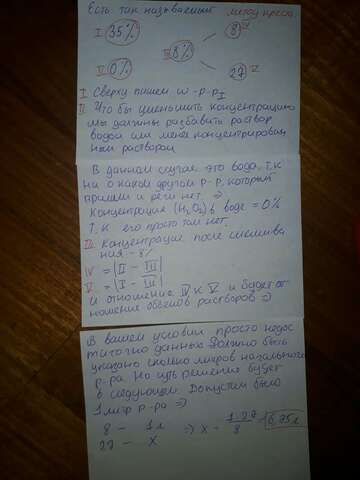 Есть так называемый метод креста
I 35% 8 IV
III 8%
II 0% 27 V
I Сверху пишем ω -р-ра
II Что бы уменьшить концентрацию
мы должны разбавить раствор
водой или менее концентрирован
ным раствором
В данном случае это вода, т.к
ни о каком другом р-р, который
приняли и речи нет. ⇒
концентрация (H₂O₂) в воде = 0%
т.к его просто там нет.
III Концентрация после смешива
ния - 8%
IV = |II - III|
V = |I - III|
и отношение IV к V и будет от
ношение объемов растворов ⇒
В вашем условии просто недос
таточно данных. Должно быть
указано сколько литров начального
р-ра. Но путь решения будет
в следующем. Допустим было
1 литр р-ра ⇒
8 - 1л
27 - X ⇒ X = 1·27/8